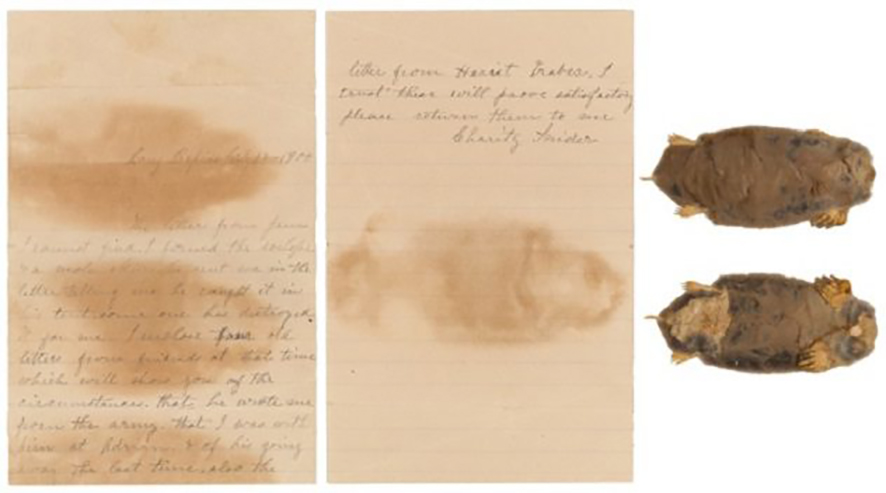 letter from
I cannot find. I found the envelope
a mole skin he sent me in the
letter telling me he caught it in
his tent some one has destroyed
it for me. I enclose four old
letters from friends at that time
which will show you of the
circumstances. that he wrote me
from the army. that I was with
him at Adrian. & of his going
the last time, also the
letter from Harriet I
trust these will prove satisfactory
please return them to me
Charity Snider